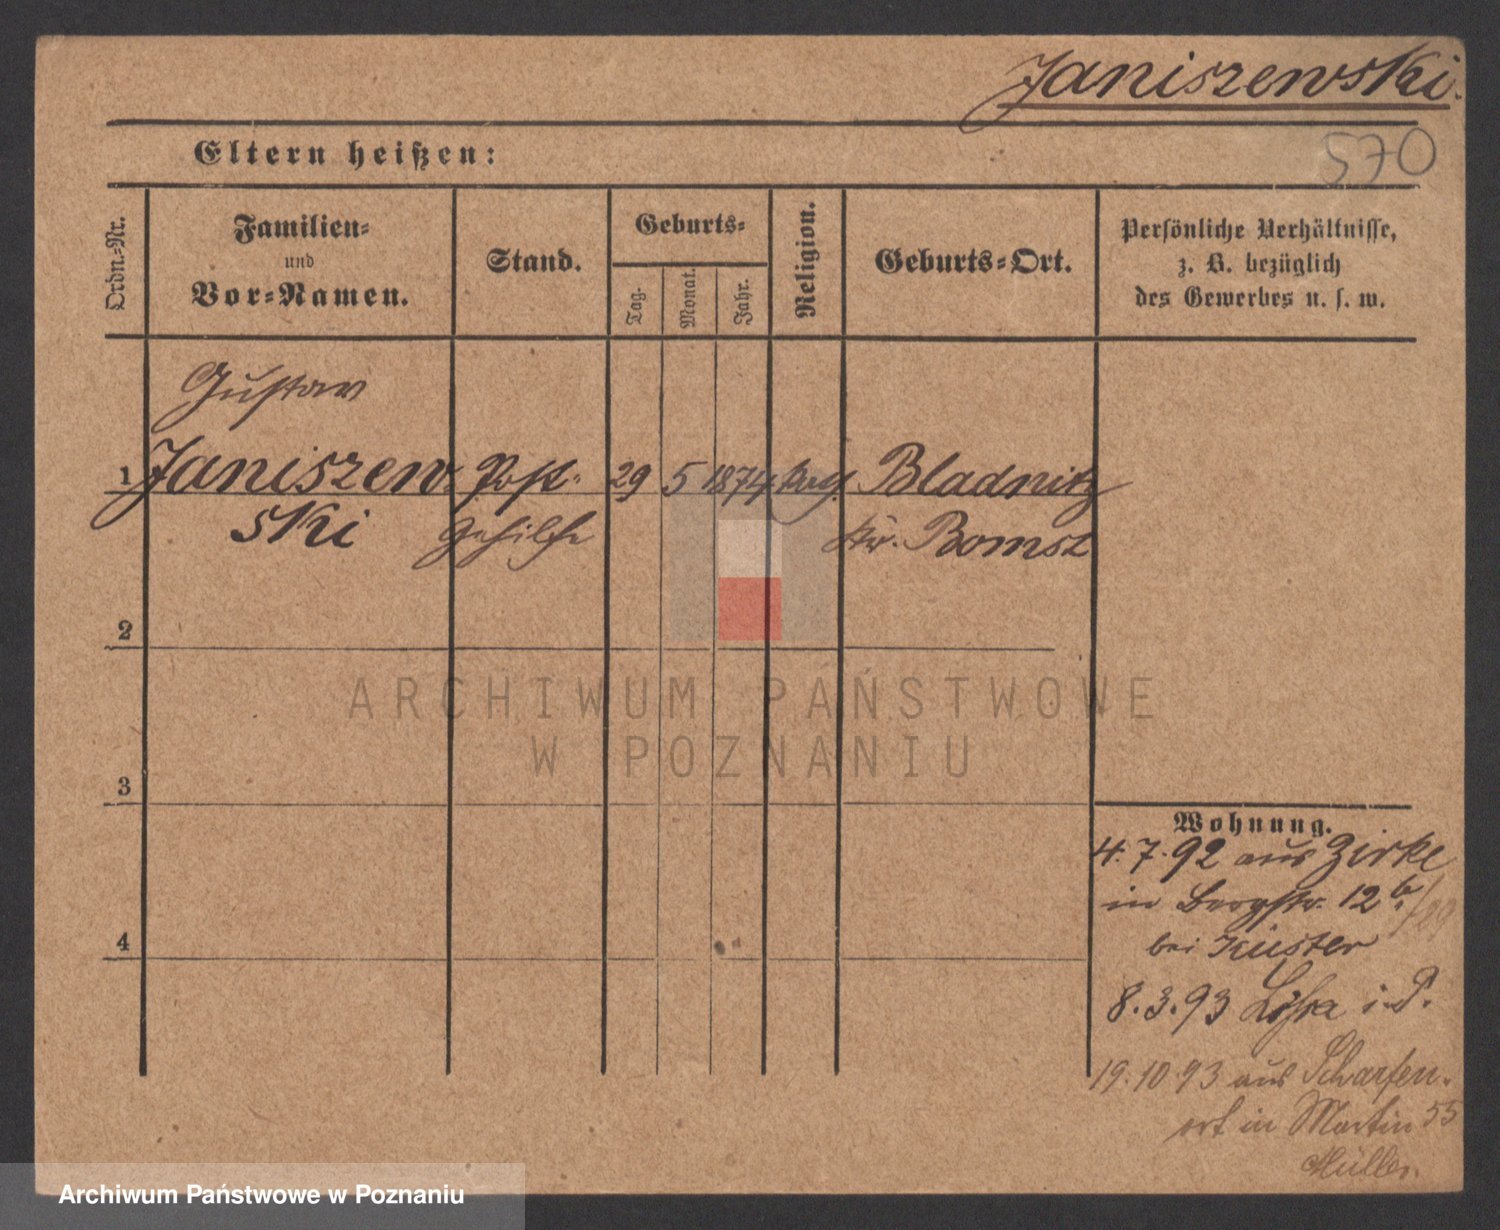 Janiszewski.
570
Eltern heißen:
Ordn.-Nr.
Familien-
und
Vor-Namen.
Stand.
Geburts-
Tag.
Monat.
Jahr.
Religion.
Geburts-Ort.
Persönliche Verhältnisse,
z. B. bezüglich
des Gewerbes u. s. w.
Gustav
1 Janiszew Post- 29 5 1874 Bladnitz
ski Gehilfe Kr. Bomst
2
3
4
Wohnung.
4.7.92 aus Zirke
in Bergstr. 12b
bei Küster
8.3.93 i. P.
19.10.93 aus Scharfen-
ort in Martin 55
Müller.
ARCHIWUM PAŃSTWOWE
W POZNANIU
Archiwum Państwowe w Poznaniu